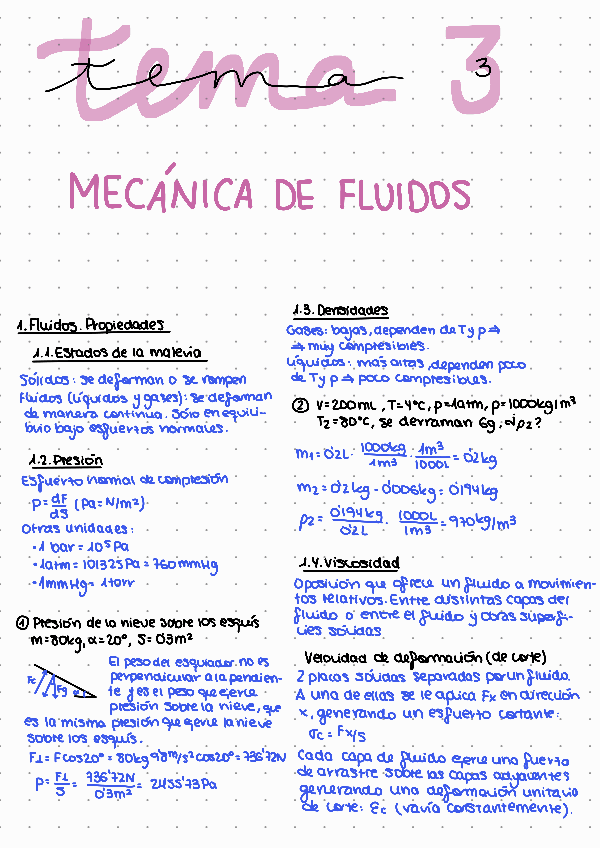 tema 3
MECÁNICA DE FLUIDOS
1. Fluidos. Propiedades
1.1. Estados de la materia
Sólidos: se deforman o se rompen
Fluidos (líquidos y gases): se deforman
de manera continua. Sólo en equili-
brio bajo esfuertos normales.
1.2. Presión
Esfuerto normal de compresión
P = dF/dS (Pa = N/m²).
Otras unidades:
· 1 bar = 10⁵ Pa
· 1atm = 101325 Pa = 760 mmHg
· 1mmHg = 1 torr
① Presión de la nieve sobre los esquís
m = 80kg, α = 20°, S = 0'3m²
Fc Fg α
El peso del esquiador no es
perpendicular a la pendien-
te y es el peso que ejerce
presión sobre la nieve, que
es la misma presión que ejerce la nieve
sobre los esquís.
F⊥ = F cos20° = 80kg 9'8 m/s² cos20° = 736'72N
P = F⊥/S = 736'72N/0'3m² = 2455'73 Pa
1.3. Densidades
Gases: bajas, dependen de T y p ⇒
⇒ muy compresibles.
Líquidos: más altas, dependen poco
de T y p ⇒ poco compresibles.
② V = 200mL, T = 4°C, p = 1atm, ρ = 1000kg/m³
T₂ = 80°C, se derraman 6g, ¿ρ₂?
m₁ = 0'2L · 1000kg/1m³ · 1m³/1000L = 0'2kg
m₂ = 0'2kg - 0'006kg = 0'194kg
ρ₂ = 0'194kg/0'2L · 1000L/1m³ = 970kg/m³
1.4. Viscosidad
Oposición que ofrece un fluido a movimien-
tos relativos. Entre distintas capas del
fluido o entre el fluido y otras superfi-
cies sólidas.
Velocidad de deformación (de corte)
2 placas sólidas separadas por un fluido.
A una de ellas se le aplica Fx en dirección
x, generando un esfuerto cortante:
σc = Fx/S
Cada capa de fluido ejerce una fuerta
de arrastre sobre las capas adyacentes
generando una deformación unitaria
de corte: εc (varía constantemente).